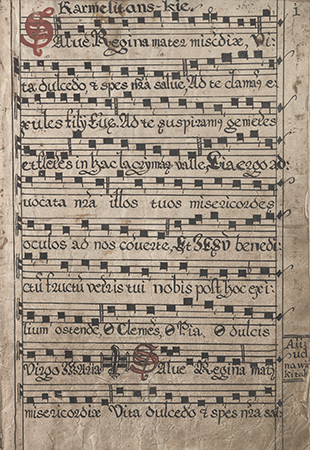 Karmelitans-kie. 1
Salue Regina mater misćdiæ, Vi:
ta dulcedo & spes nr̃a salue, Ad te clamam9 e:
xules filij Euę. Ad te suspiram9 gemẽtes
et flẽtes in hac lacrymar valle, Eia ergo ad:
uocata nr̃a illos tuos misericordes
oculos ad nos cõuerte, Et IESV benedi:
ctũ fructũ vẽtris tui nobis post hoc exi:
lium ostende, O Clemẽs, O Pia, O dulcis
Virgo Maria Salue Regina mat9
misericordiæ Vita dulcedo & spes nr̃a sal: